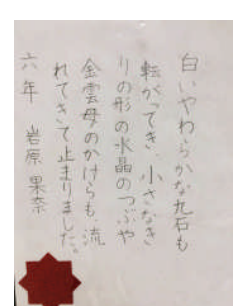 白いやわらかな丸石も
転がってき、小さなき
りの形の水晶のつぶや
金雲母のかけらも、流
れてきて止まりました。
六年 岩原果奈